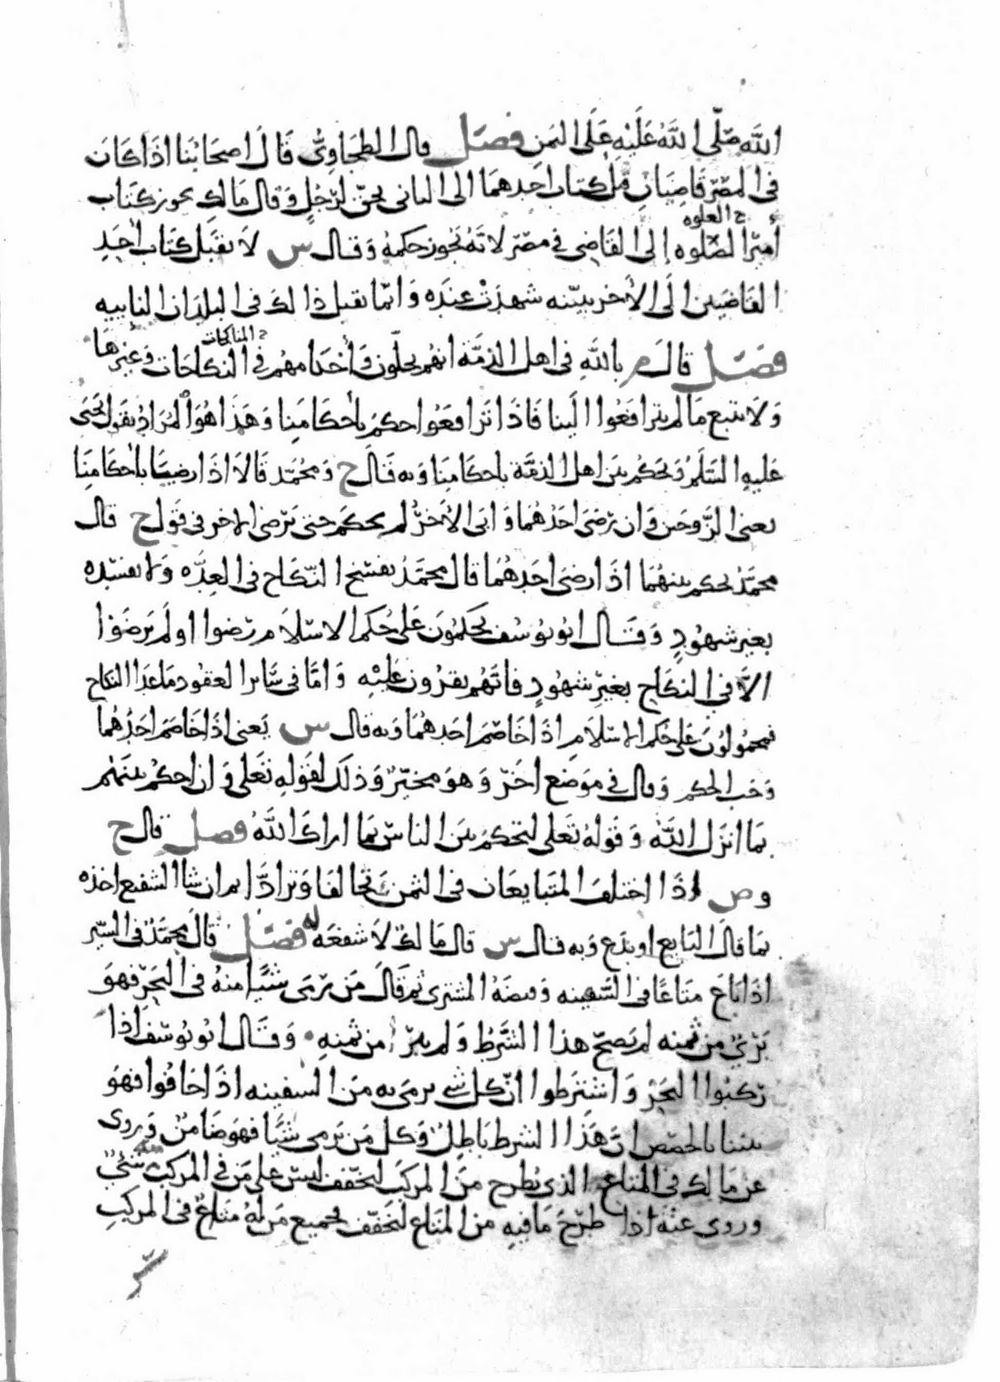 الله صلّى الله عليه على اليمن فصل قال الطحاوي قال اصحابنا اذا كان
في المصر قاضيان قبل كتاب احدهما الى الثاني بحق لرجل وقال مالك يجوز كتاب
ح العلوه
أمير الصلوه إلى القاضي في مصر لانه يجوز حكمه وقال س لا يقبل كتاب احد
القاضيين الى الأخر ببينه شهدت عنده وانما يقبل ذالك في البلدان النايية
ح المناكحات
فصل قال م بالله في اهل الذمة انهم يحلون وأحكامهم في النكاحات وغيرها
ولا نتبع ما لم يترافعوا الينا فاذا ترافعوا حكم باحكامنا وهذا هو المراد بقول يحيى
عليه السلم ويحكم بين اهل الذمة باحكامنا وبه قال ح ومحمد قالا اذا رضيا باحكامنا
يعني الزوجين وان رضي احدهما وابى الأخر لم يحكم حتى يرضى الاخر في قول ح قال
محمد يحكم بينهما اذا رضي احدهما قال محمد يفسخ النكاح في العده ولا يفسده
بغير شهود وقال ابو يوسف يحكمون على حكم الاسلام رضوا او لم يرضوا
الا في النكاح بغير شهود فانهم يقرون عليه واما في سائر العقود ما عدا النكاح
فمحمولون على حكم الاسلام اذا خاصم احدهما وبه قال س يعني اذا خاصم احدهما
وجب الحكم وقال في موضع اخر وهو مخير وذلك لقوله تعلى وان احكم بينهم
بما انزل الله وقوله تعلى لتحكم بين الناس بما اراك الله فصل قال ح
وص اذا اختلف المتبايعان في الثمن تحالفا وترادا ثم ان شا الشفيع اخذه
بما قال البايع او يدع وبه قال س قال مالك لا شفعه له فصل قال محمد في السير
اذا باع متاعا في السفينه وقبضه المشتري ثم قال من يرمى شيئا منه في البحر فهو
بريّ من ثمنه لم يصح هذا الشرط ولم يبرأ من ثمنه وقال ابو يوسف اذا
ركبوا البحر واشترطوا ان كل شي يرمى به من السفينه اذا خافوا فهو
بيننا بالحصص ان هذا الشرط باطل وكل من رمى شيا فهو ضامن وروى
عن مالك في المتاع الذي يطرح من المركب لتخفف ليس على من في المركب شي
وروى عنه اذا طرح ما فيه من المتاع لتخفف لجميع من له متاع في المركب